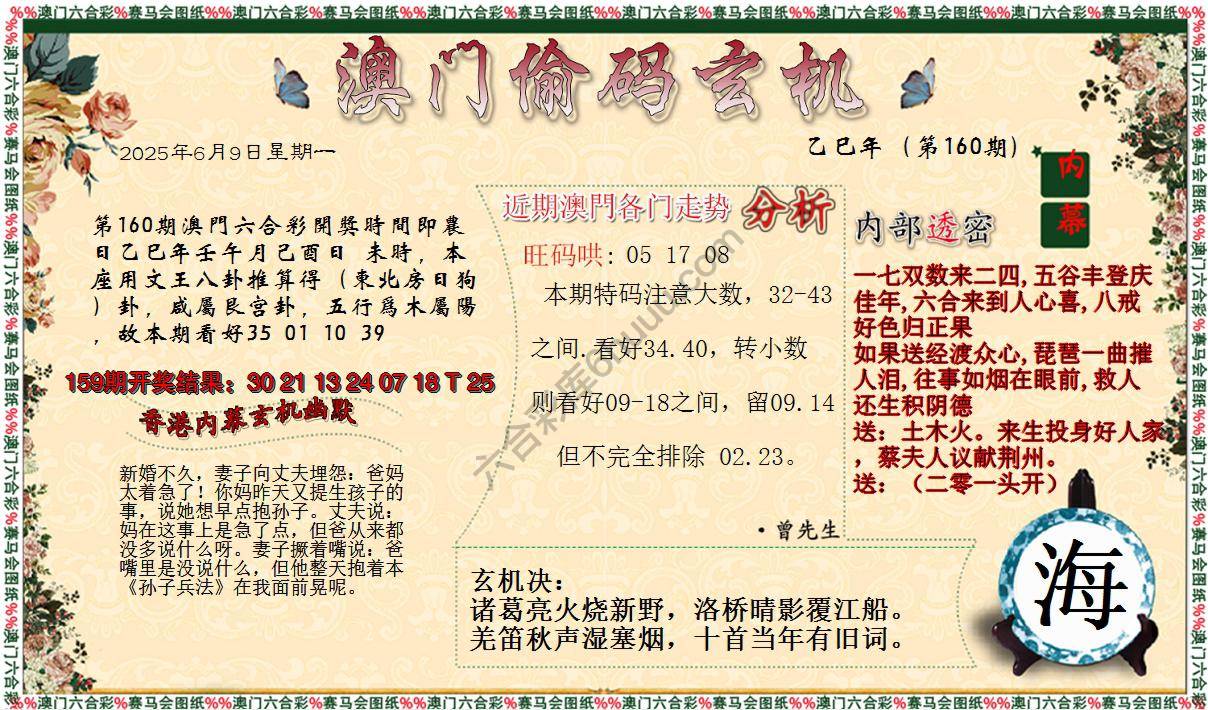 %%澳门六合彩%赛马会图纸%%澳门六合彩%赛马会图纸%%澳门六合彩%赛马会图纸%%澳门六合彩%赛马会图纸%%澳门六合彩%赛马会图纸%%澳门六合彩%赛马会图纸%%
澳门偷码玄机
2025年6月9日星期一
乙巳年（第160期）
内幕
第160期澳門六合彩開獎時間即農
日乙巳年壬午月己酉日 未時，本
座用文王八卦推算得（東北房日狗
）卦，咸屬艮宫卦，五行爲木屬陽
，故本期看好35 01 10 39
159期开奖结果：30 21 13 24 07 18 T 25
香港内幕玄机幽默
新婚不久，妻子向丈夫埋怨：爸妈
太着急了！你妈昨天又提生孩子的
事，说她想早点抱孙子。丈夫说：
妈在这事上是急了点，但爸从来都
没多说什么呀。妻子撅着嘴说：爸
嘴里是没说什么，但他整天抱着本
《孙子兵法》在我面前晃呢。
近期澳門各门走勢 分析
旺码哄: 05 17 08
本期特码注意大数，32-43
之间.看好34.40，转小数
则看好09-18之间，留09.14
但不完全排除 02.23。
·曾先生
内部透密
一七双数来二四,五谷丰登庆
佳年,六合来到人心喜,八戒
好色归正果
如果送经渡众心,琵琶一曲摧
人泪,往事如烟在眼前,救人
还生积阴德
送：土木火。来生投身好人家
，蔡夫人议献荆州。
送：（二零一头开）
玄机决：
诸葛亮火烧新野，洛桥晴影覆江船。
羌笛秋声湿塞烟，十首当年有旧词。
海
%%澳门六合彩%赛马会图纸%%澳门六合彩%赛马会图纸%%澳门六合彩%赛马会图纸%%澳门六合彩%赛马会图纸%%澳门六合彩%赛马会图纸%%澳门六合彩%赛马会图纸%%